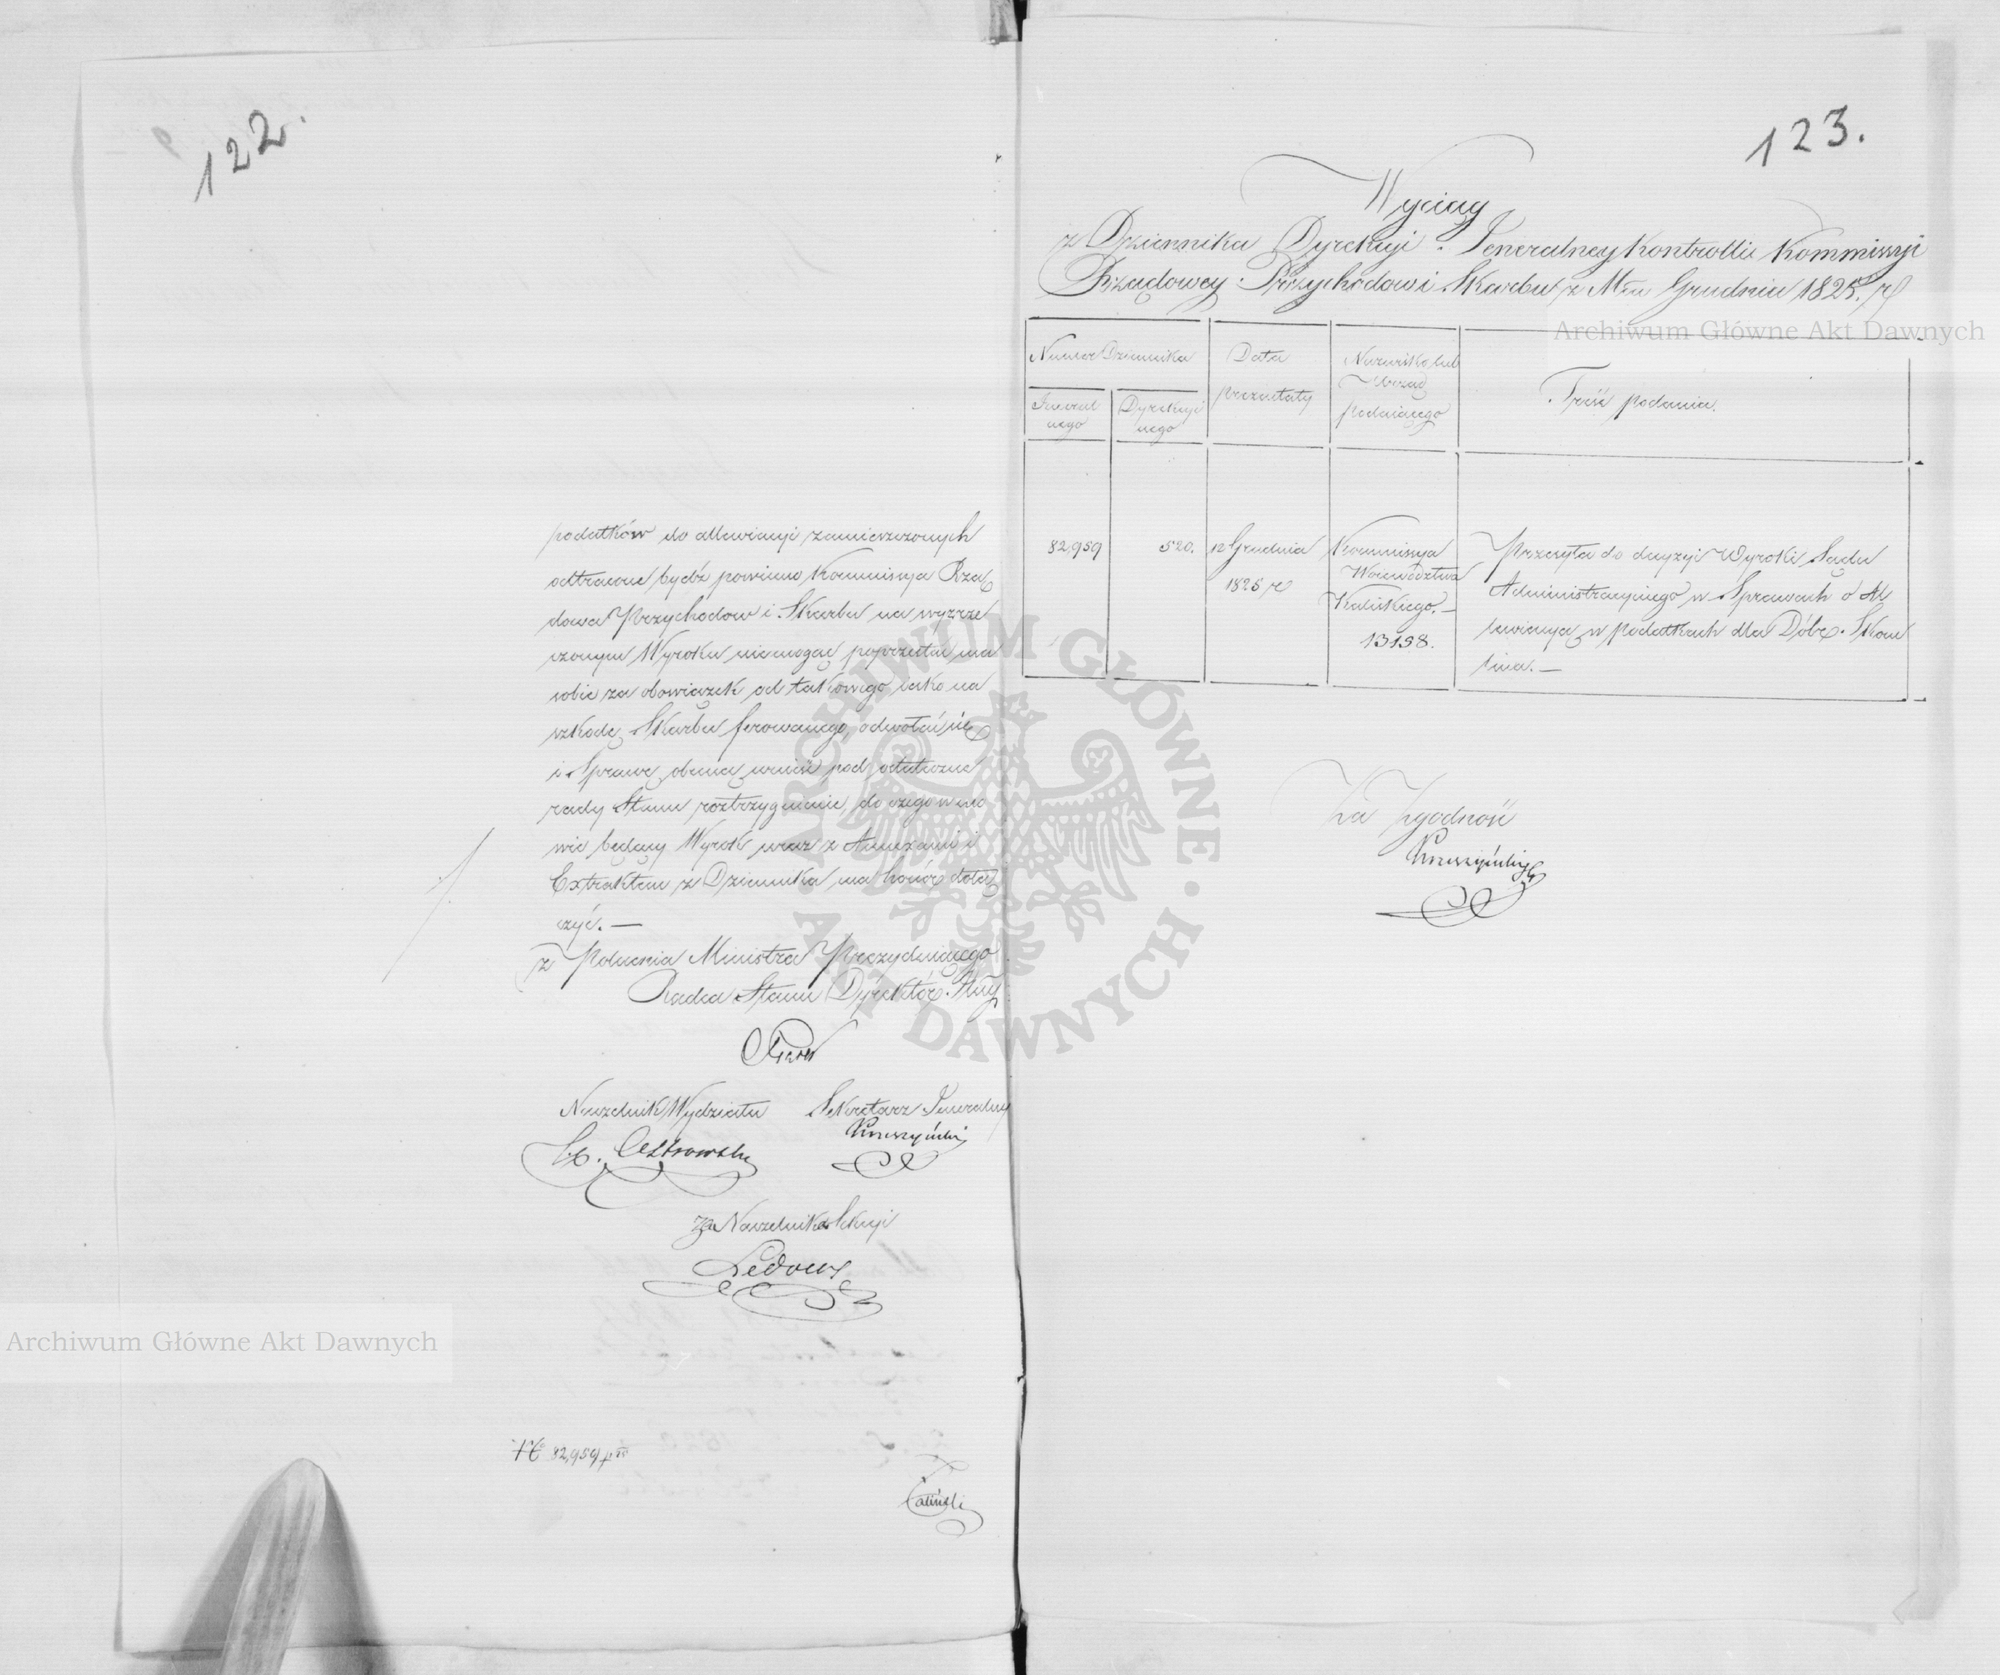 122.
podatków do allewiacyi zamieszczonych
odtrącone bydź powinno Kommissya Rzą
dowa Przychodow i Skarbu na wyrze
czonym Wyroku niemogąc poprzestać ma
sobie za obowiązek od takowego jako na
szkodę Skarbu ferowanego, odwołać się
i Sprawę obecną wnieść pod ostateczne
rady Stanu rozstrzygnienie, do czego w mo
wie będący Wyrok wraz z Annexami i
Extraktem z Dziennika ma honor dołą
czyć. —
z Polecenia Ministra Prezydującego
Radca Stanu Dyrektor Jlny
Naczelnik Wydziału Sekretarz Jeneralny
Ostrowski Kruszyński
Za Naczelnika Sekcyi
№ 82,959/25
123.
Wyciąg
z Dziennika Dyrekcyi Jeneralney Kontrolli Kommissyi
Rządowey Przychodow i Skarbu z Mca Grudnia 1825. r
Numer Dziennika
Data
prezentaty
Nazwisko, lub
Urząd
podaiącego
Treść podania.
Jeneral
nego
Dyrekcyi
nego
82,959
520.
12 Grudnia
1825 r
Kommissya
Woiewództwa
Kaliskiego. —
13158.
Przesyła do decyzyi Wyroki Sądu
Administracyinego w Sprawach o Al
lewiacyą w podatkach dla Dóbr Skom
lina. —
Za Zgodność
Kruszyński
Archiwum Główne Akt Dawnych
Archiwum Główne Akt Dawnych
ARCHIWUM GŁÓWNE
AKT DAWNYCH